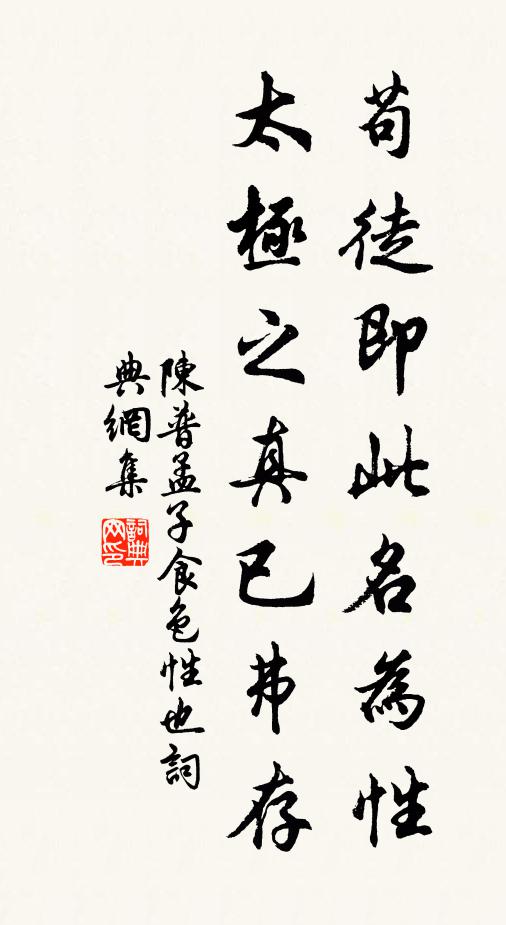 苟徒即此名為性
太極之真已弗存
陳普孟子食色性也詞
典網集
詞典
网印